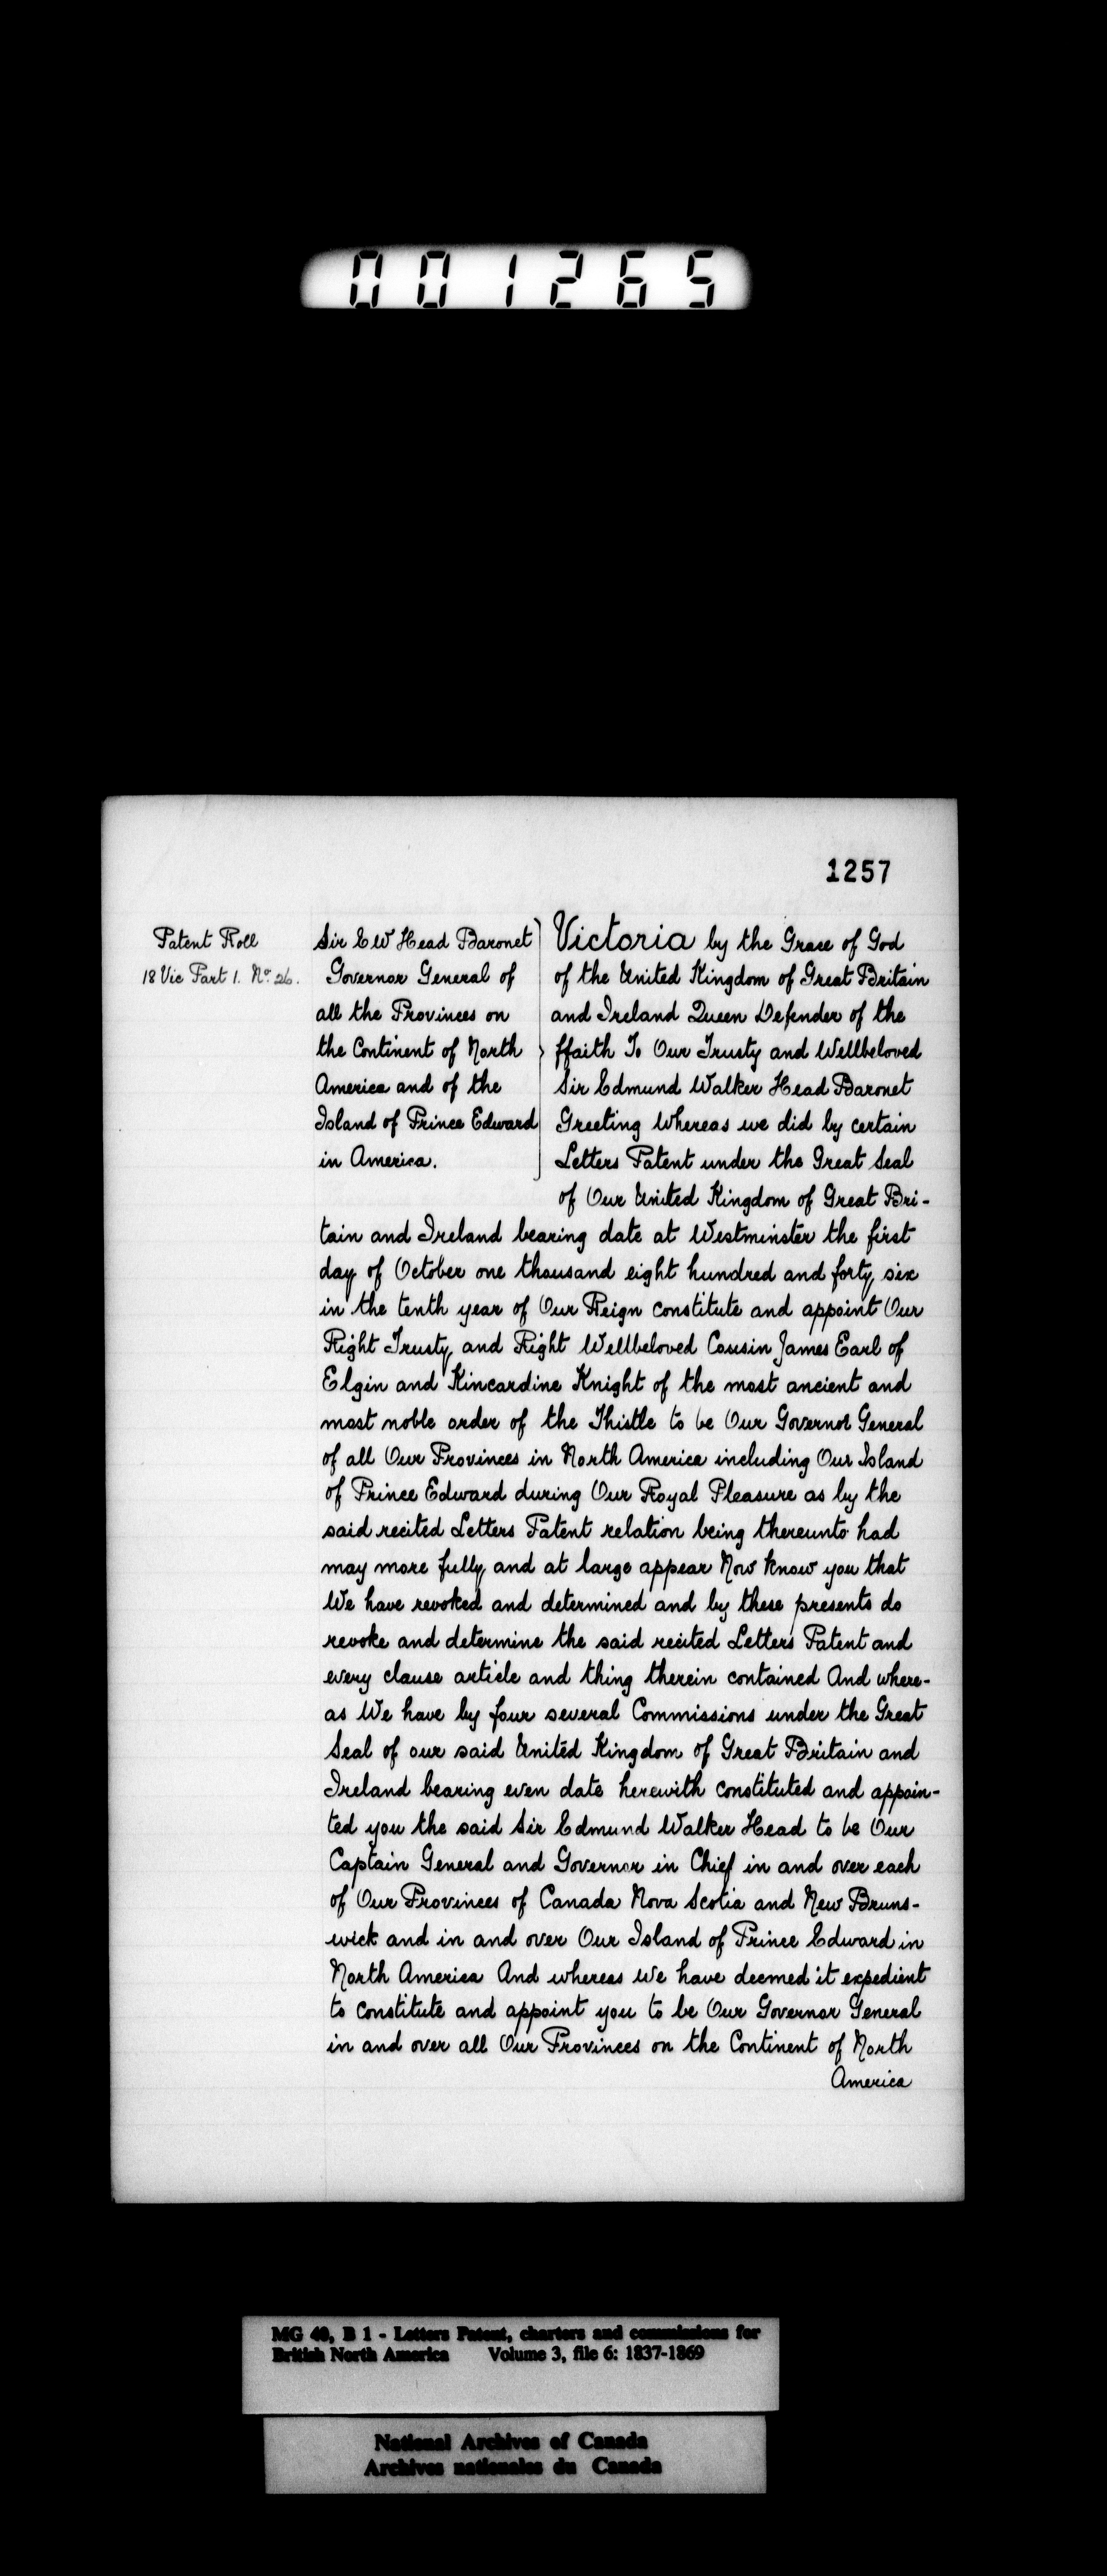 001265
1257
Patent Roll
18 Vic Part 1. No. 26.
Sir E W Head Baronet
Governor General of
all the Provinces on
the Continent of North
America and of the
Island of Prince Edward
in America.
Victoria by the Grace of God
of the United Kingdom of Great Britain
and Ireland Queen Defender of the
ffaith To Our Trusty and Wellbeloved
Sir Edmund Walker Head Baronet
Greeting Whereas we did by certain
Letters Patent under the Great Seal
of Our United Kingdom of Great Bri-
tain and Ireland bearing date at Westminster the first
day of October one thousand eight hundred and forty six
in the tenth year of Our Reign constitute and appoint Our
Right Trusty and Right Wellbeloved Cousin James Earl of
Elgin and Kincardine Knight of the most ancient and
most noble order of the Thistle to be Our Governor General
of all Our Provinces in North America including Our Island
of Prince Edward during Our Royal Pleasure as by the
said recited Letters Patent relation being thereunto had
may more fully and at large appear Now know you that
We have revoked and determined and by these presents do
revoke and determine the said recited Letters Patent and
every clause article and thing therein contained And where-
as We have by four several Commissions under the Great
Seal of our said United Kingdom of Great Britain and
Ireland bearing even date herewith constituted and appoin-
ted you the said Sir Edmund Walker Head to be Our
Captain General and Governor in Chief in and over each
of Our Provinces of Canada Nova Scotia and New Bruns-
wick and in and over Our Island of Prince Edward in
North America And whereas We have deemed it expedient
to constitute and appoint you to be Our Governor General
in and over all Our Provinces on the Continent of North
America
MG 40, B 1 - Letters Patent, charters and commissions for
British North America Volume 3, file 6: 1837-1869
National Archives of Canada
Archives nationales du Canada